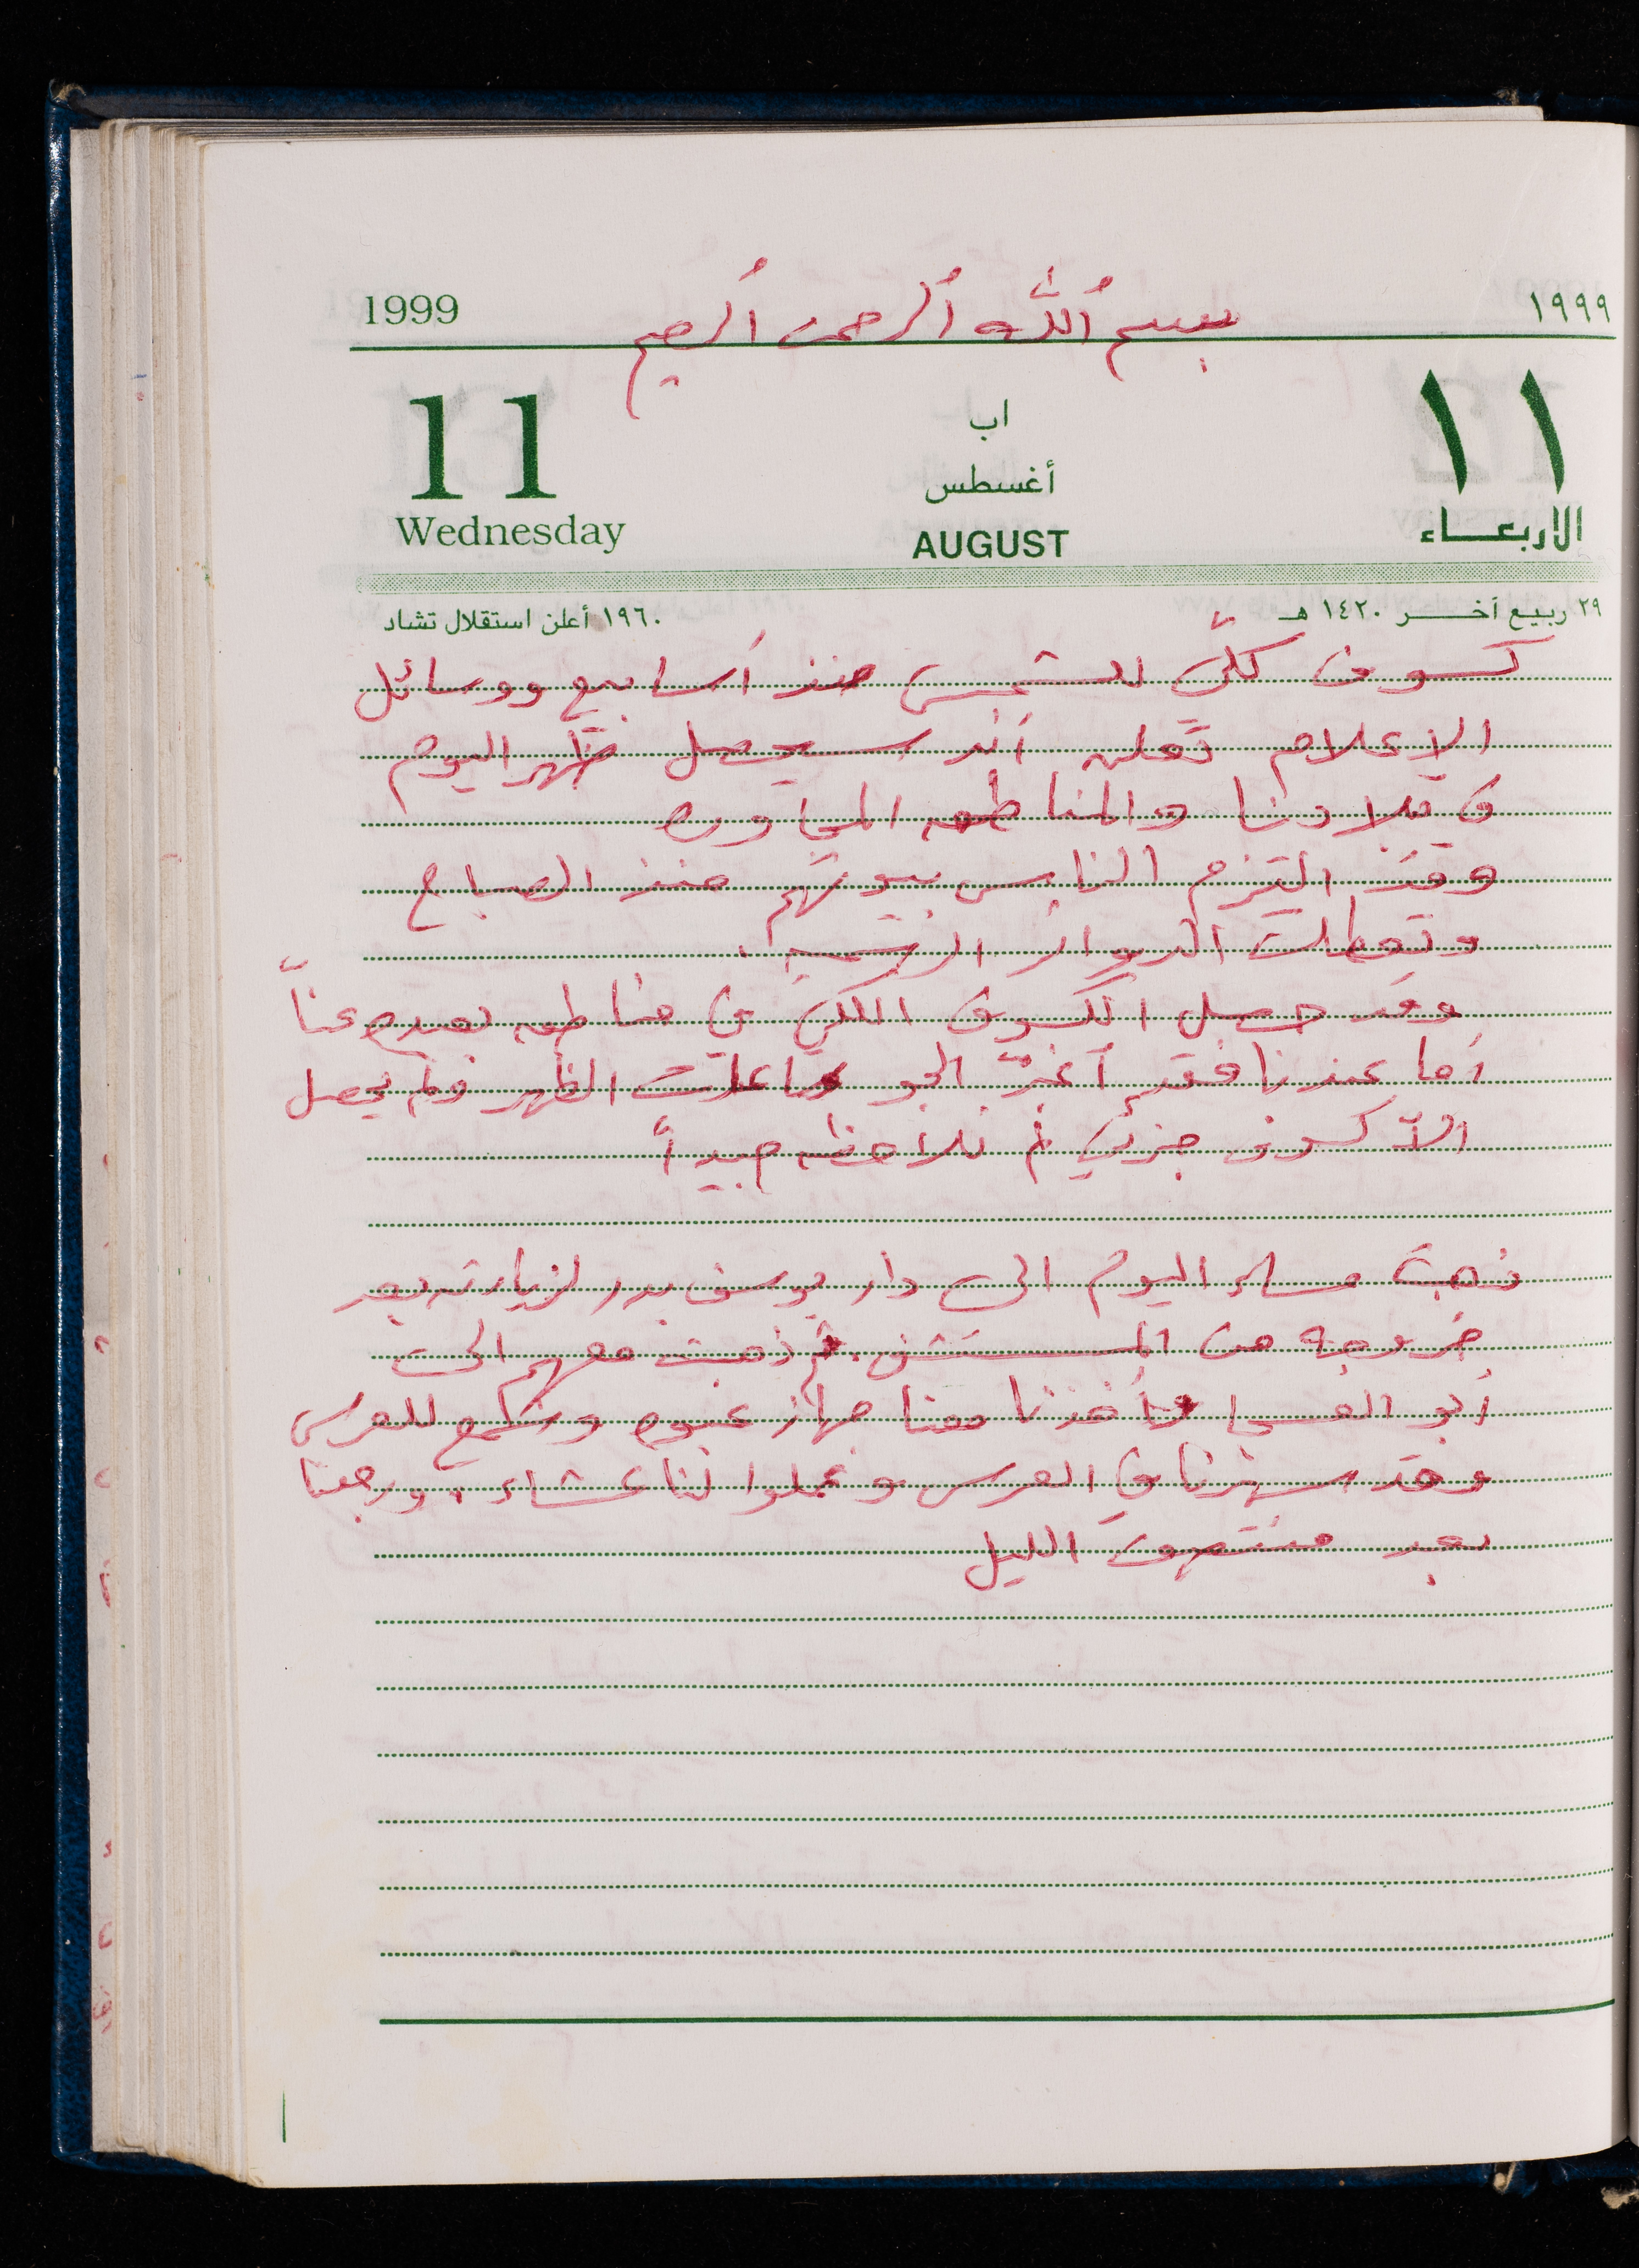 1999 بسم ألله ألرحمن ألرحيم ١٩٩٩
11 اب ١١
أغسطس
Wednesday AUGUST الاربعاء
٢٩ ربيع آخر ١٤٢٠ هـ ١٩٦٠ أعلن استقلال تشاد
كسوف كليّ للشمس منذ أسابيع ووسائل
الإعلام تعلن أنه سيحصل ظهر اليوم
في بلادنا والمناطق المجاوره
وقد التزم الناس بيوتهم منذ الصباح
وتعطلت الدوائر الرسميه.
وقد حصل الكسوف الكلي في مناطق بعيده عنّا
أما عندنا فقد أغبرّ الجو ساعات الظهر ولم يحصل
الاّ كسوف جزئي لم نلاحظه جيداً
ذهبت مساء اليوم الى دار يوسف بدر لزيارته بعد
خروجه من المستشفى. ثم ذهبت معهم الى
أبو العسجا وأخذنا معنا جهاز عنبوه وشمع للعرس
وقد سهرنا في العرس وعملوا لنا عشاء. ورجعنا
بعد منتصف الليل